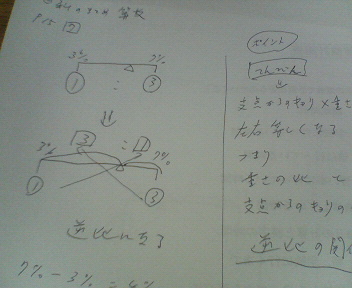 算数
P15 [2]
3% 7%
① : ③
⇓
[3] : [1]
3% 7%
① ③
逆比になる
7% - 3% = 4%
ポイント
てんびん
⇓
支点からのきょり×重さ
左右等しくなる
つまり
重さの比 と
支点からのきょりの
逆比の関係